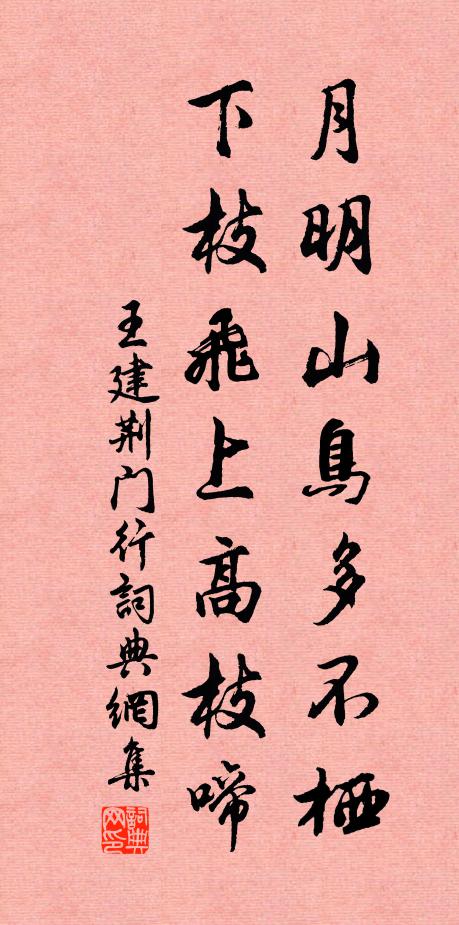 月明山鳥多不栖
下枝飛上高枝啼
王建荆門行詞典網集
詞典网印